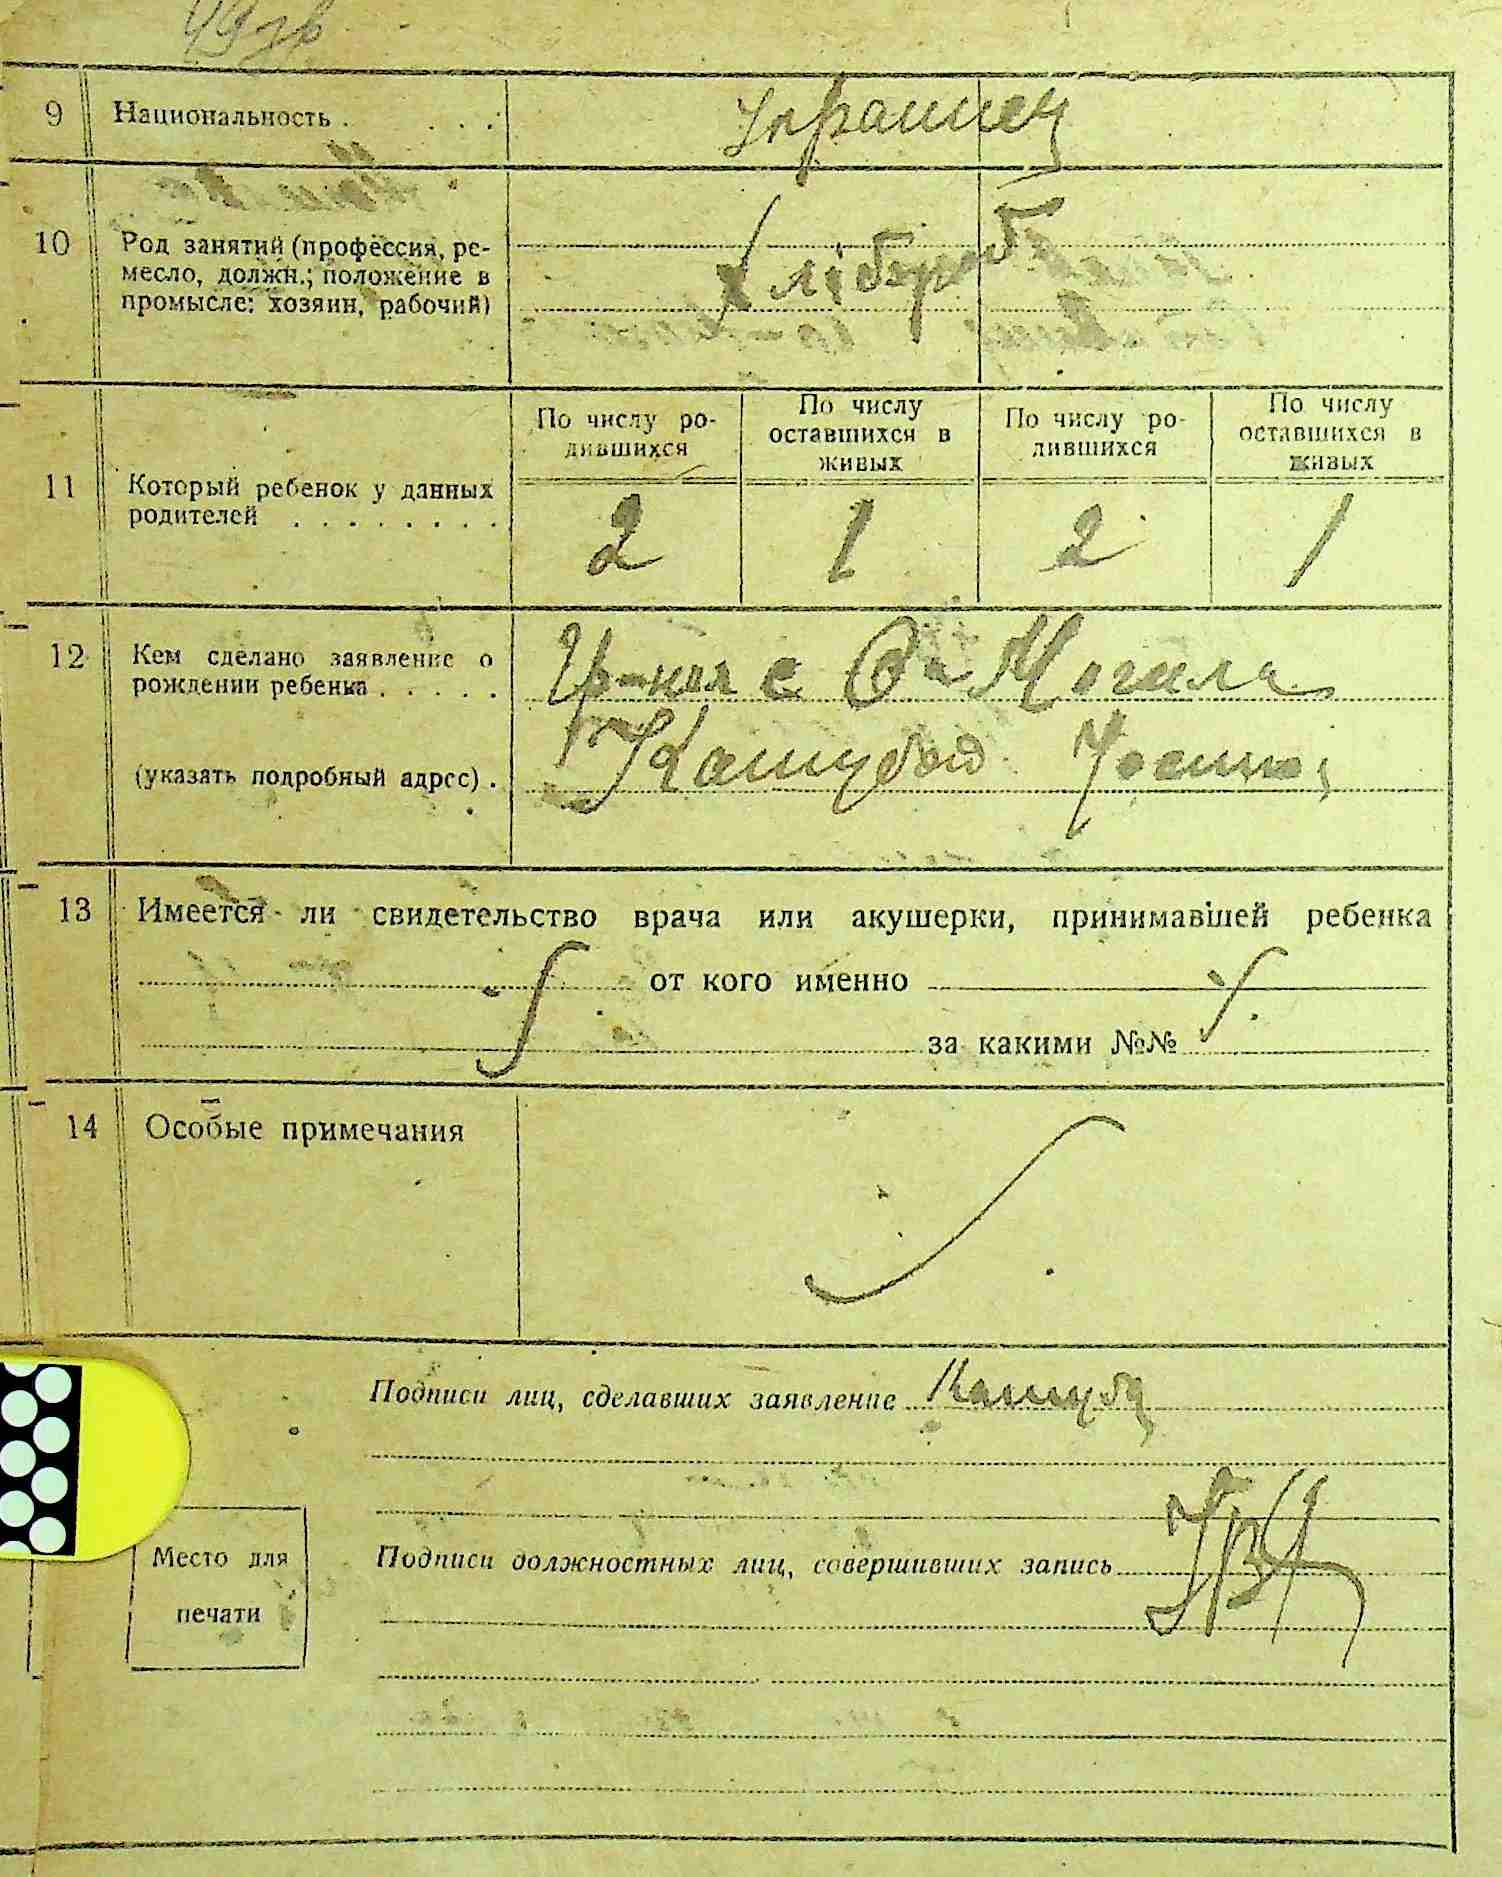 49 зв
9 Национальность . . . . Украинец
10 Род занятий (профессия, ре-
месло, должн.; положение в
промысле: хозяин, рабочий)
Хлібороб
11 Который ребенок у данных
родителей . . . . . . . .
По числу ро-
дившихся
По числу
оставшихся в
живых
По числу ро-
дившихся
По числу
оставшихся в
живых
2 1 2 1
12 Кем сделано заявление о
рождении ребенка . . . . .
(указать подробный адрес) .
с Могила
Кашубой
13 Имеется ли свидетельство врача или акушерки, принимавшей ребенка
от кого именно
за какими №№
14 Особые примечания
Подписи лиц, сделавших заявление Кашуба
Подписи должностных лиц, совершивших запись
Место для
печати